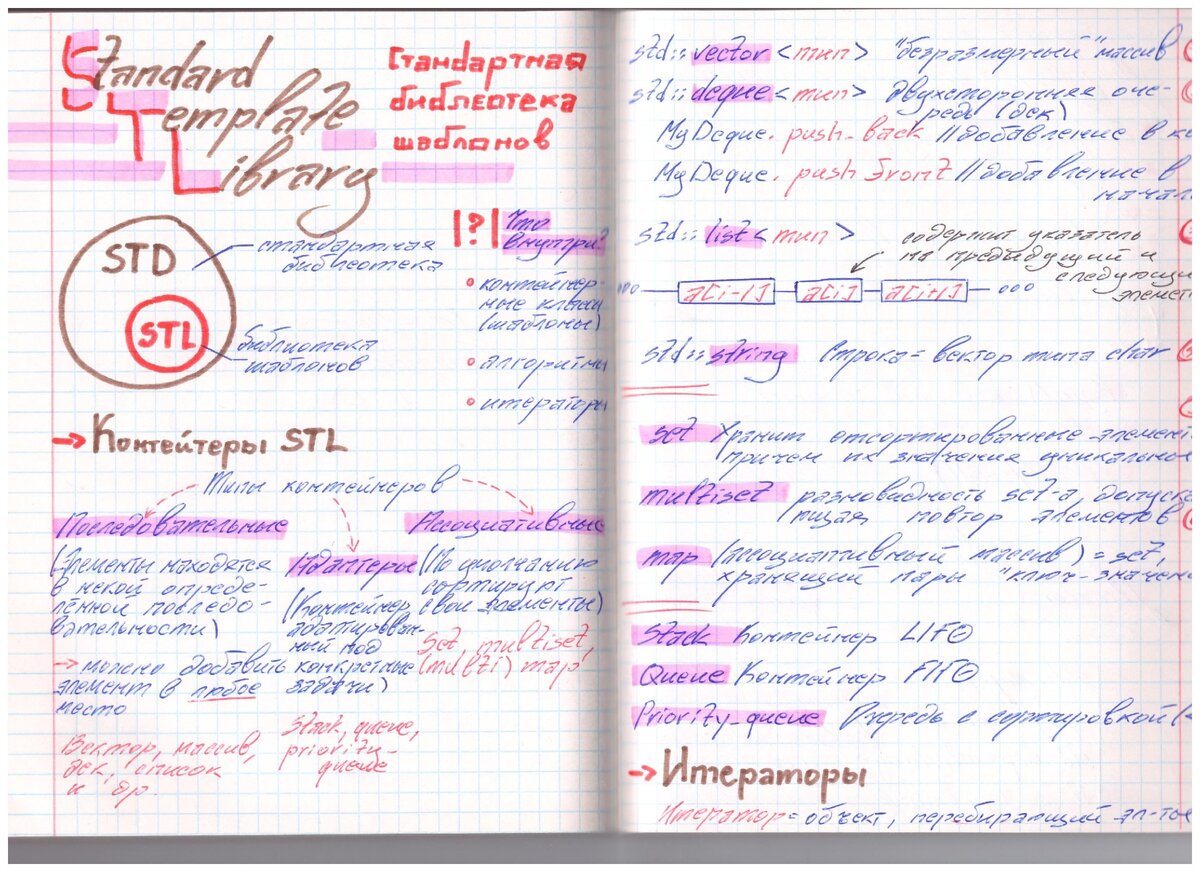 Standard
Template
Library
Стандартная
библеотека
шаблонов
STD
STL
стандартная
библиотека
библиотека
шаблонов
|?| Что
внутри?
• контейнер-
ные классы
(шаблоны)
• алгоритмы
• итераторы
→ Контейтеры STL
Типы контейнеров
Последовательные
(Элементы находятся
в некой опреде-
лённой последо-
вательности)
→ можно добавить
элемент в любое
место
Вектор, массив,
дек, список
и др.
Адаптеры
(Контейнер
адаптирован-
ный под
конкретные
задачи)
Stack, queue,
priority-
queue
Ассоциативные
(По умолчанию
сортируют
свои элементы)
Set, multiset,
(multi) map
std::vector <тип> "безразмерный" массив
std::deque <тип> двухсторонняя оче-
редь (дек)
MyDeque. push-back //добавление в
MyDeque. push front //добавление в
начал
std::list <тип>
содержит указатель
на предыдущий и
следующи
элемент
ooo a[i-1] a[i] a[i+1] ooo
std::string Строка = вектор типа char
set Хранит отсортированные элемен
причем их значения уникальны
multiset разновидность set-а, допуска
ющая повтор элементов
map (ассоциативный массив) = set,
хранящий пары "ключ-значен
Stack Контейнер LIFO
Queue Контейнер FIFO
Priority_queue Очередь с сортировкой (
→ Итераторы
Итератор = объект, перебирающий эл-ты